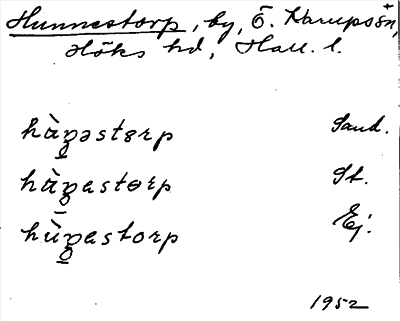 Hunnestorp, by, Ö. Karups sn,
Höks hd, Hall. l.
hàgəstɵrp Sand.
hàgastɵrp St.
hùgastorp Ej.
1952